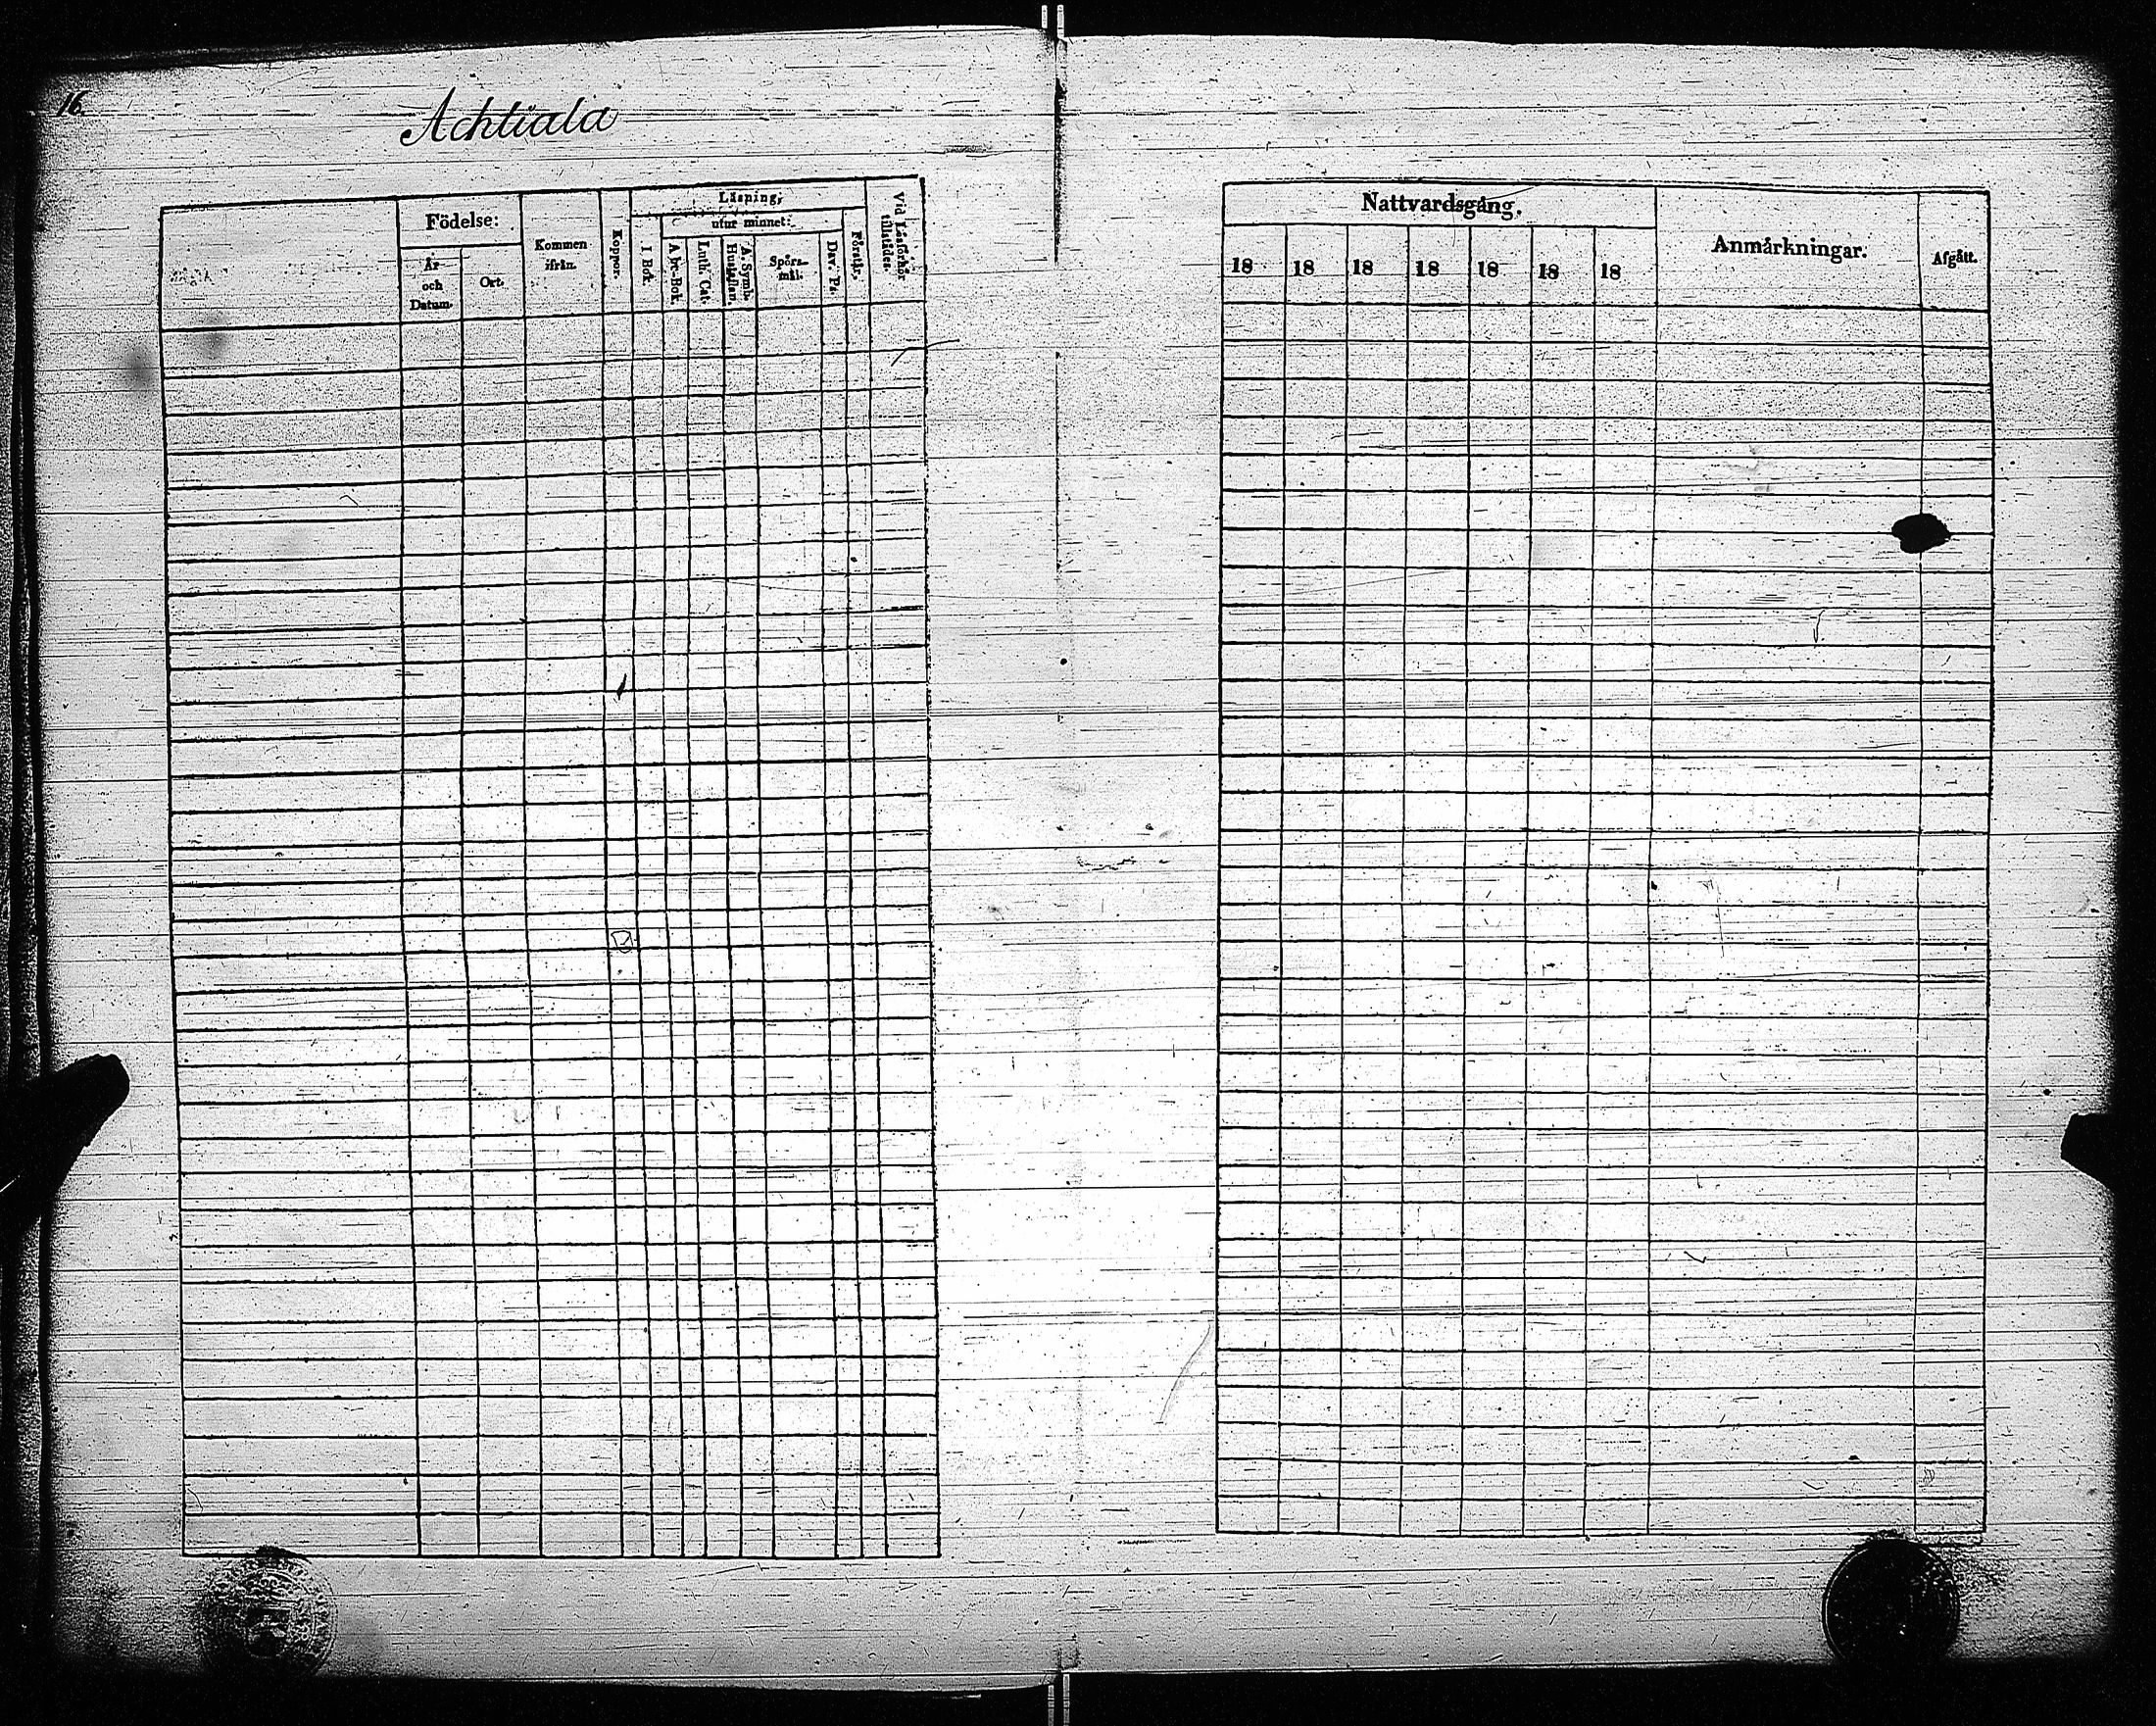 16
Achtiala
Födelse:
År och Datum.
Ort.
Kommen ifrån.
Koppor.
Läsning,
I Bok.
utur minnet:
A be-Bok.
Luth. Cat.
A. Symb. Hustaflan.
Spörs-mål.
Dav. Ps.
Förstår.
Vid Läsförhör tillstädes.
Nattvardsgång.
18 18 18 18 18 18 18
Anmärkningar.
Afgått.